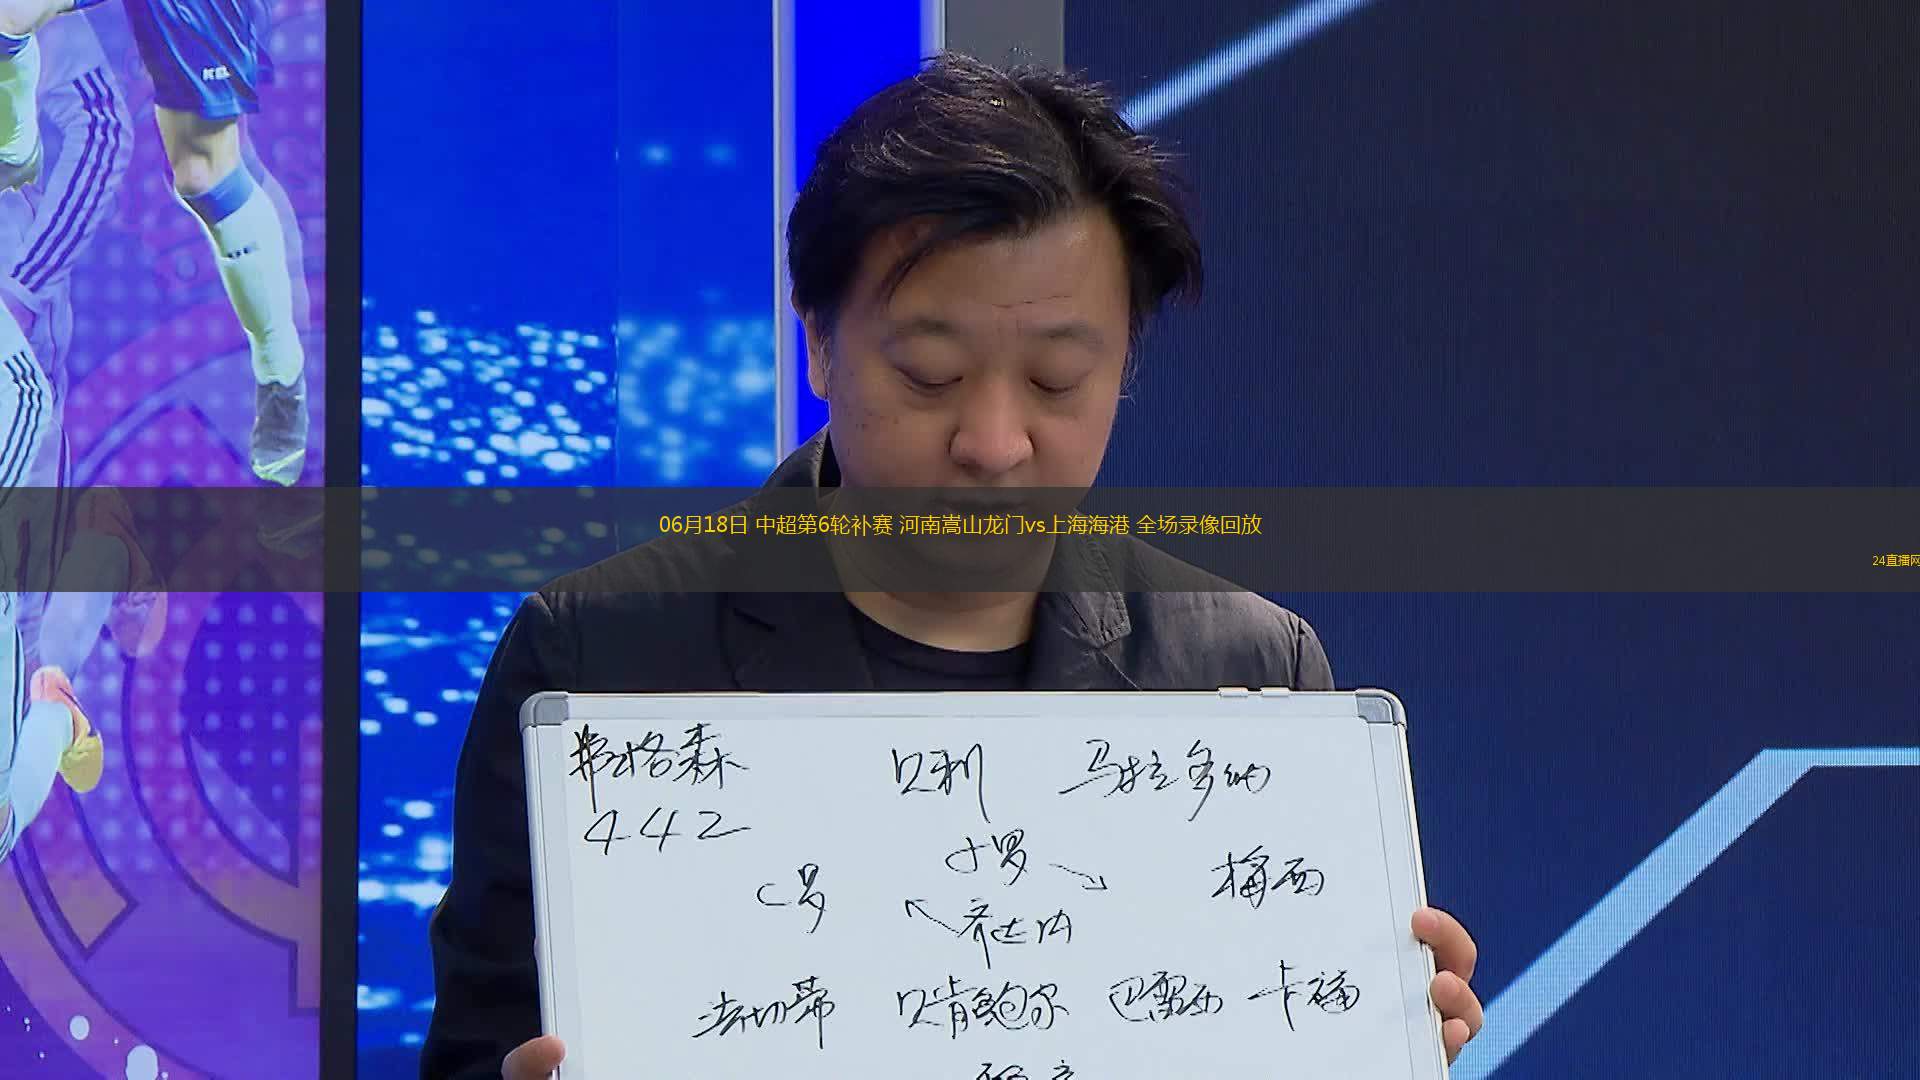 06月18日 中超第6轮补赛 河南嵩山龙门vs上海海港 全场录像回放
24直播网
弗格森 贝利 马拉多纳
442
小罗
C罗 梅西
齐达内
法切蒂 贝肯鲍尔 巴雷西 卡福